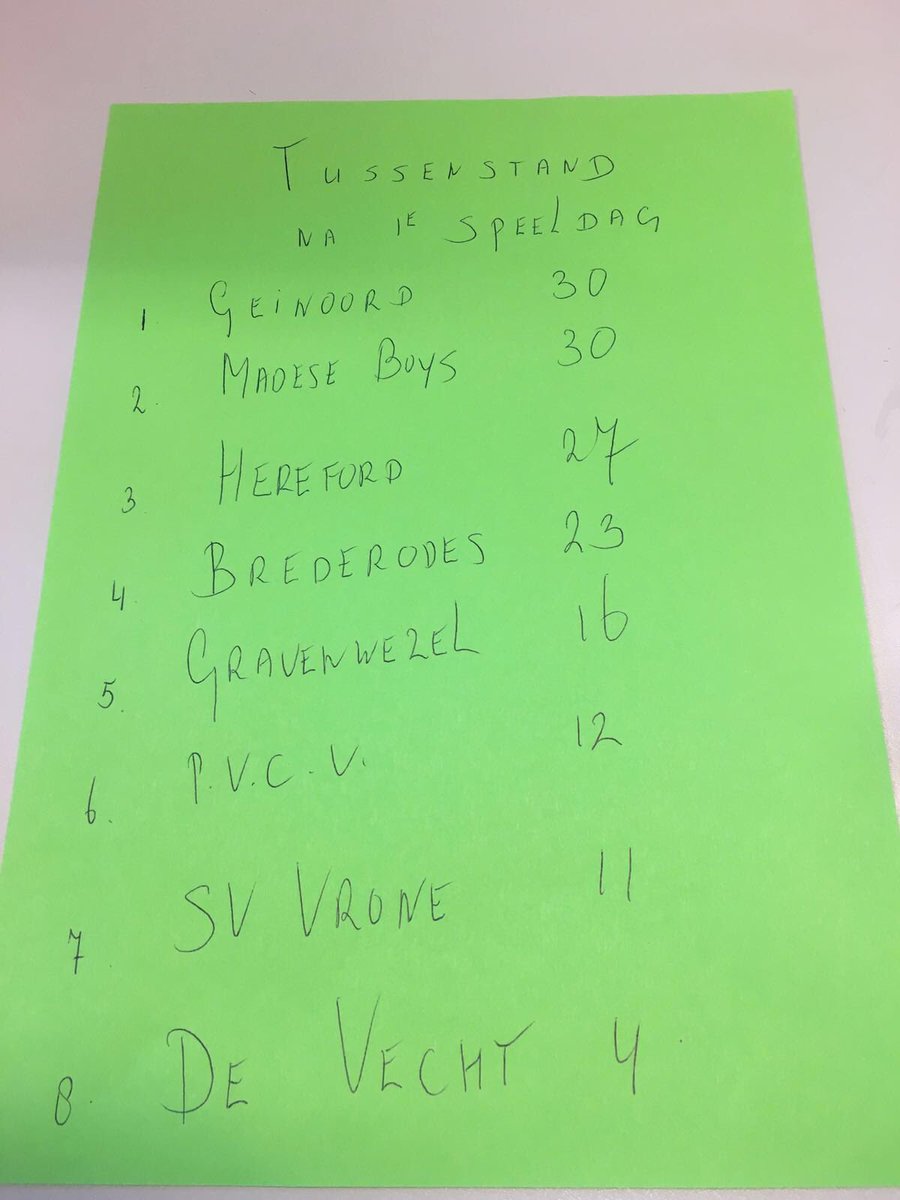 TUSSENSTAND
NA 1E SPEELDAG
1. GEINOORD 30
2. MADESE BOYS 30
3 HEREFORD 27
4. BREDERODES 23
5. GRAVENWEZEL 16
6. P.V.C.V. 12
7. SV VRONE 11
8. DE VECHT 4